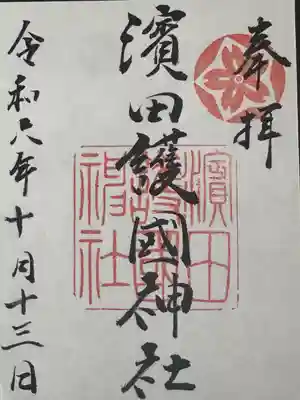 奉拝
濱田護國神社
令和六年十月十三日
濱田
護國
神社